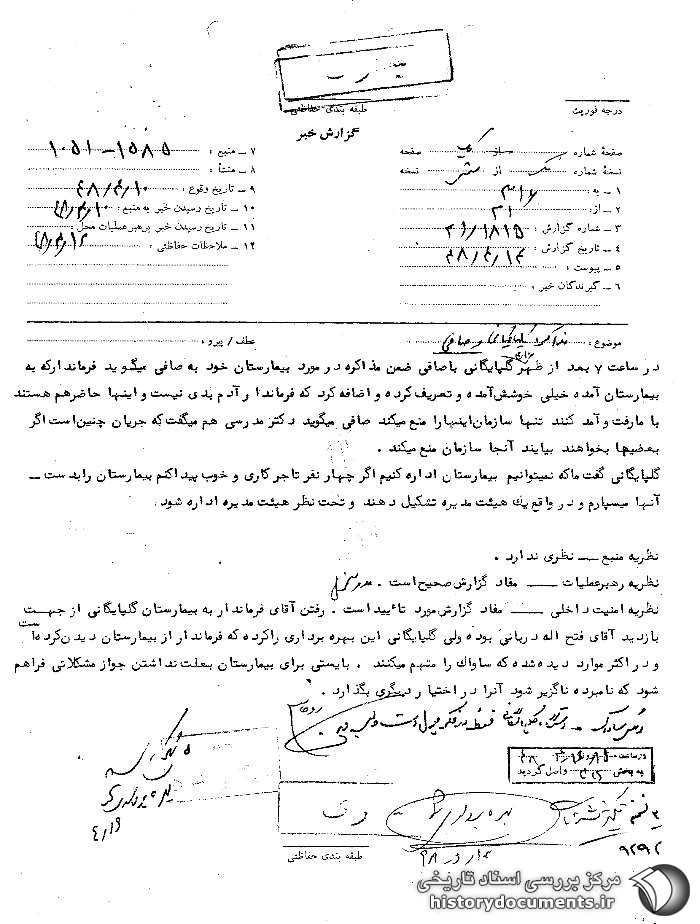 درجه فوریت
طبقه بندی حفاظتی
گزارش خبر
صفحهٔ شماره : صفحه
نسخهٔ شماره : یک از نسخه
۱ ــ به : ۳۱۶
۲ ــ از : ۲۱
۳ ــ شماره گزارش : ۲۱/۱۸۱۵
۴ ــ تاریخ گزارش : ۴۸/۴/۱۴
۵ ــ پیوست :
۶ ــ گیرندگان خبر :
۷ ــ منبع : ۱۵۸۵-۱۰۵۱
۸ ــ منشأ :
۹ ــ تاریخ وقوع : ۴۸/۴/۱۰
۱۰ ــ تاریخ رسیدن خبر به منبع : ۴۸/۴/۱۰
۱۱ ــ تاریخ رسیدن خبر برهبر عملیات محل :
۱۲ ــ ملاحظات حفاظتی :
موضوع : مذاکره گلپایگانی و صافی
عطف / پیرو :
در ساعت ۷ بعد از ظهر گلپایگانی باصافی ضمن مذاکره در مورد بیمارستان خود به صافی میگوید فرماندارکه به
بیمارستان آمده خیلی خوشش آمده و تعریف کرده و اضافه کرد که فرماندار آدم بدی نیست و اینها حاضرهم هستند
با ما رفت و آمد کنند تنها سازمان اینهارا منع میکند صافی میگوید دکتر مدرسی هم میگفت که جریان چنین است اگر
بعضیها بخواهند بیایند آنجا سازمان منع میکند .
گلپایگانی گفت ماکه نمیتوانیم بیمارستان اداره کنیم اگر چهار نفر تاجر کاری و خوب پیدا کنم بیمارستان را بدست ــ
آنها میسپارم و در واقع یك هیئت مدیره تشکیل دهند و تحت نظر هیئت مدیره اداره شود .
نظریه منبع ــ نظری ندارد .
نظریه رهبرعملیات ــ مفاد گزارش صحیح است .
نظریه امنیت داخلی ــ مفاد گزارش مورد تائید است . رفتن آقای فرماندار به بیمارستان گلپایگانی از جهت
بازدید آقای فتح اله دریانی بوده ولی گلپایگانی این بهره برداری را کرده که فرماندار از بیمارستان دیدن کرده است
و در اکثر موارد دیده شده که ساواك را متهم میکنند . بایستی برای بیمارستان بعلت نداشتن جواز مشکلاتی فراهم
شود که نامبرده ناگزیر شود آنرا در اختیار دیگری بگذارد .
در ساعت
به بخش واصل گردید
۳ نسخه
بهره برداری
۹۲۹۲
۴/۱۹
طبقه بندی حفاظتی
مرکز بررسی اسناد تاریخی
historydocuments.ir